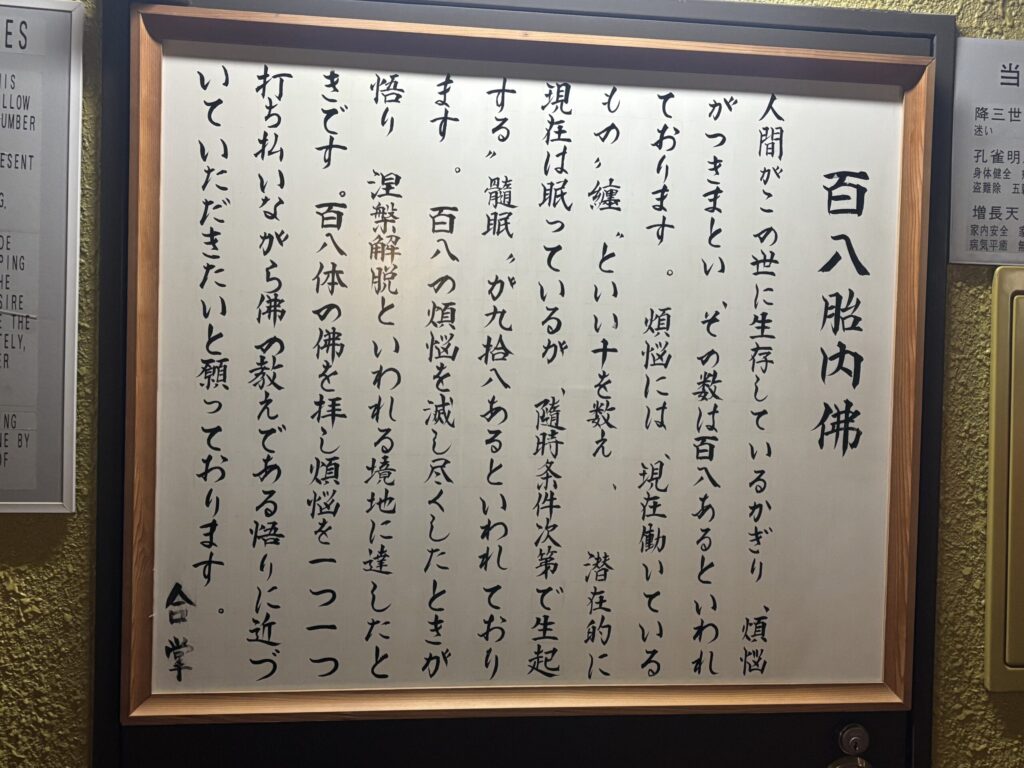 百八胎内佛
人間がこの世に生存しているかぎり、煩悩
がつきまとい、その数は百八あるといわれ
ております。煩悩には、現在働いている
もの〝纏〟といい十を数え、潜在的に
現在は眠っているが、随時条件次第で生起
する〝髄眠〟が九拾八あるといわれており
ます。百八の煩悩を滅し尽くしたときが
悟り 涅槃解脱といわれる境地に達したと
きです。百八体の佛を拝し煩悩を一つ一つ
打ち払いながら佛の教えである悟りに近づ
いていただきたいと願っております。
合掌
ES
HIS
LLOW
UMBER
ESENT
G.
DE
PING
HE
SIRE
E THE
TELY,
ER
ING
NE BY
OF
当
降三世
迷い
孔雀明
身体健全
盗難除
増長天
家内安全
病気平癒